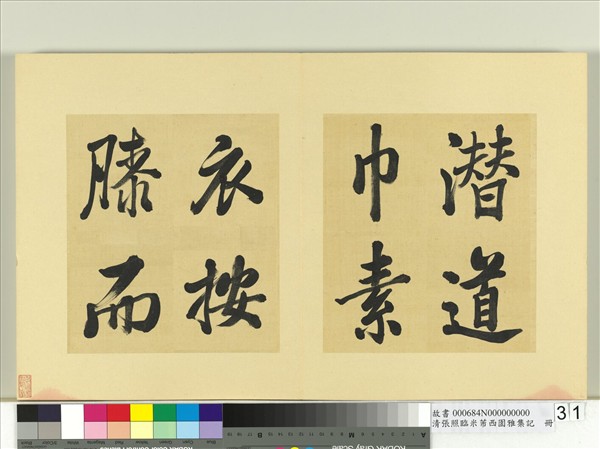 潜道
巾素
衣按
膝而
故書 000684N000000000
清張照臨米芾西園雅集記 冊
31
KODAK Gray Scale